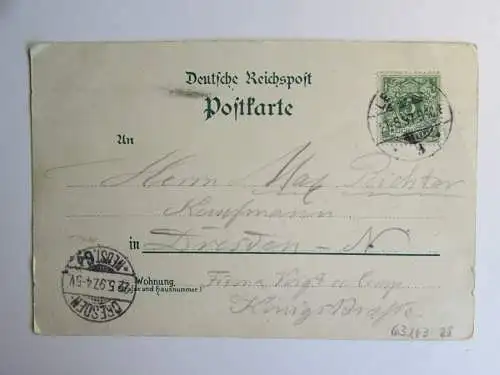 Deutsche Reichspost
Postkarte
An
Herrn Max Richter
Kaufmann
in Dresden-N
Wohnung
(Straße und Hausnummer)
Firma Voigt u. Comp
Königstraße
DRESDEN
5.97.4-5N
NEUST.
63243 28